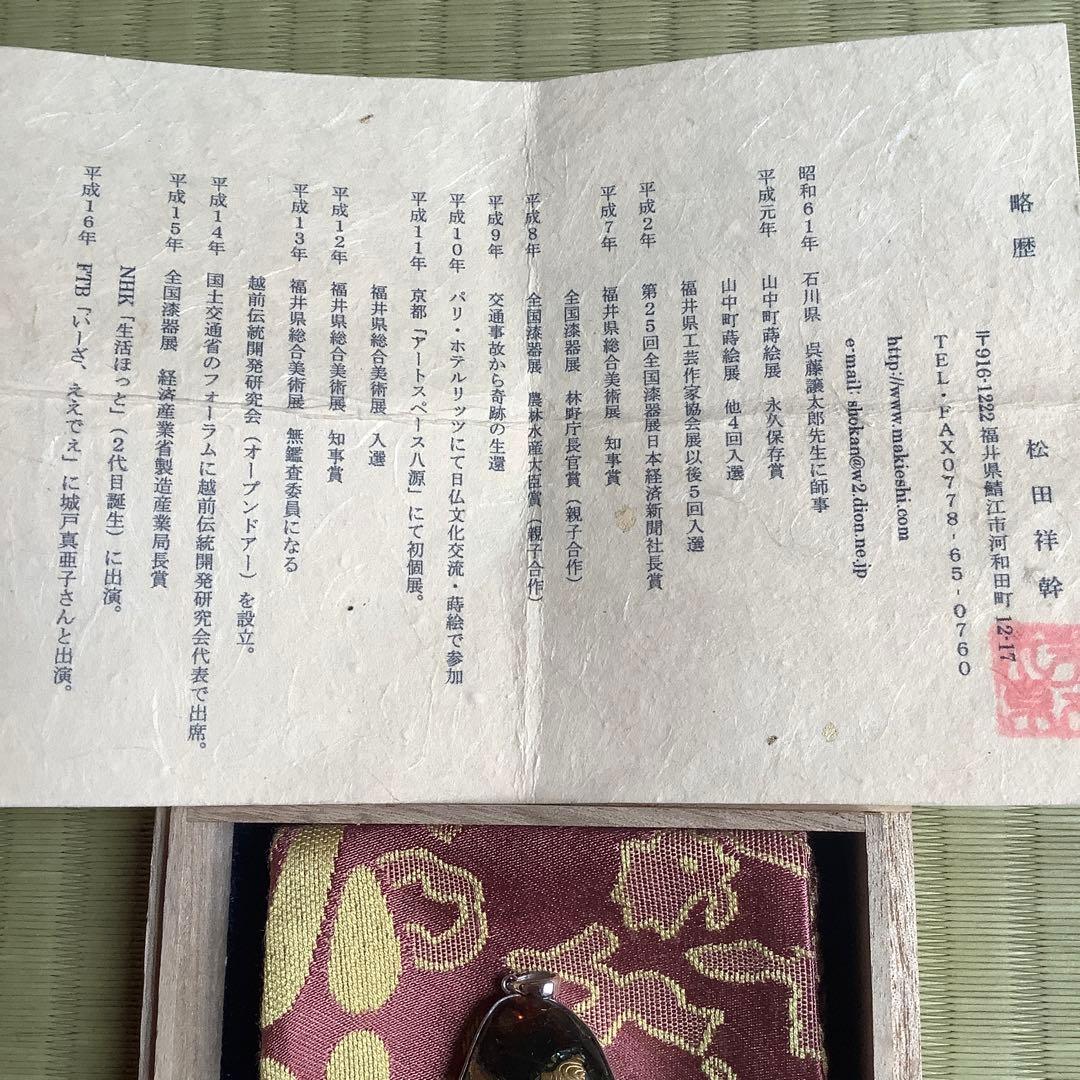 略歴
松田祥幹
〒916-1222 福井県鯖江市河和田町 12-17
TEL・FAX0778-65-0760
http://www.makieshi.com
e-mail: sbokan@w2.dion.ne.jp
昭和61年 石川県 呉藤譲太郎先生に師事
平成元年 山中町蒔絵展 永久保存賞
山中町蒔絵展 他4回入選
福井県工芸作家協会展以後5回入選
平成2年 第25回全国漆器展日本経済新聞社長賞
平成7年 福井県総合美術展 知事賞
全国漆器展 林野庁長官賞(親子合作)
平成8年 全国漆器展 農林水産大臣賞(親子合作)
平成9年 交通事故から奇跡の生還
平成10年 パリ・ホテルリッツにて日仏文化交流・蒔絵で参加
平成11年 京都「アートスペース八源」にて初個展。
福井県総合美術展 入選
平成12年 福井県総合美術展 知事賞
平成13年 福井県総合美術展 無鑑査委員になる
越前伝統開発研究会(オープンドアー)を設立。
平成14年 国土交通省のフォーラムに越前伝統開発研究会代表で出席。
平成15年 全国漆器展 経済産業省製造産業局長賞
NHK「生活ほっと」(2代目誕生)に出演。
平成16年 FTB「いーざ、ええでぇ」に城戸真亜子さんと出演。